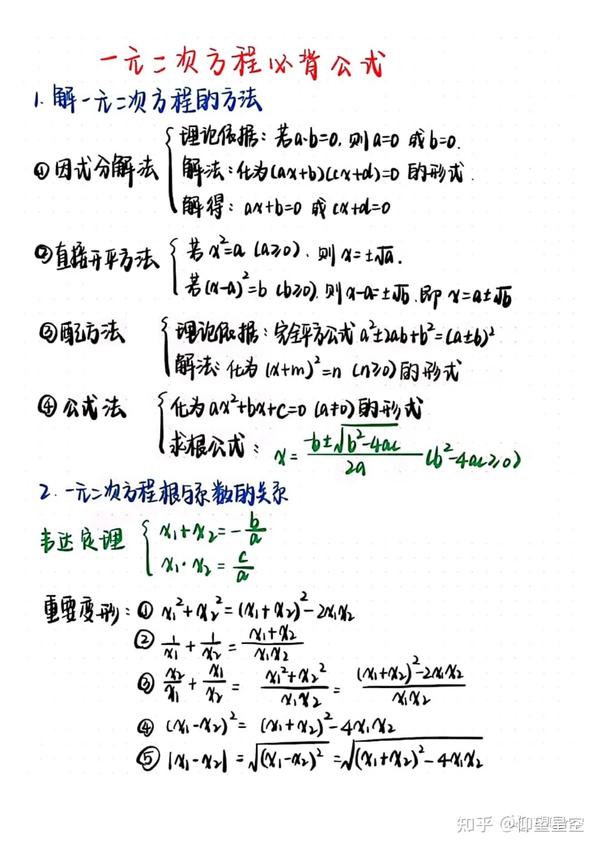 一元二次方程必背公式
1. 解一元二次方程的方法
①因式分解法
理论依据：若a·b=0，则a=0 或 b=0.
解法：化为(ax+b)(cx+d)=0 的形式.
解得：ax+b=0 或 cx+d=0
②直接开平方法
若 x²=a (a≥0)，则 x=±√a.
若(x-a)²=b (b≥0)，则x-a=±√b，即 x=a±√b
③配方法
理论依据：完全平方公式 a²±2ab+b²=(a±b)²
解法：化为 (x+m)²=n (n≥0)的形式
④公式法
化为ax²+bx+c=0 (a≠0)的形式
求根公式：x=(-b±√(b²-4ac))/(2a) (b²-4ac≥0)
2. 一元二次方程根与系数的关系
韦达定理
x₁+x₂=-b/a
x₁·x₂=c/a
重要变形：① x₁²+x₂²=(x₁+x₂)²-2x₁x₂
② 1/x₁+1/x₂=(x₁+x₂)/(x₁x₂)
③ x₂/x₁+x₁/x₂=(x₁²+x₂²)/(x₁x₂)=((x₁+x₂)²-2x₁x₂)/(x₁x₂)
④ (x₁-x₂)²=(x₁+x₂)²-4x₁x₂
⑤ |x₁-x₂|=√((x₁-x₂)²)=√((x₁+x₂)²-4x₁x₂)
知乎 @仰望星空